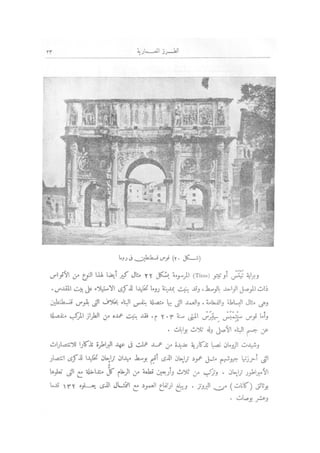 الطرز المعمارية ٢٣
(شكل ٢٠) قوس قسطنطين فى روما
وبوابة تيتس أو تيتو (Titus) المرسومة بشكل ٢٢ مثال كبير أيضا لهذا النوع من الأقواس
ذات المدخل الواحد بالوسط. وقد بنيت بمدينة روما تخليدا لذكرى الاستيلاء على بيت المقدس.
وهى مثال البساطة والفخامة. والعمد التى بها متصلة بنفس البناء بخلاف التى بقوس قسطنطين
وأما قوس سپتيمس سيڤيرس المبنى سنة ٢٠٣ م. فقد بنيت عمده من الطراز المركب منفصلة
عن جسم البناء الأصلى وله ثلاث بوابات.
وشيدت الرومان نصبا تذكارية عديدة من عمد عملت فى عهد الأباطرة تذكارا للانتصارات
التى أحرزتها جيوشهم مثل عمود تراجان الذى أقيم بوسط ميدان تراجان تخليدا لذكرى انتصار
الأمبراطور تراجان. وتركب من ثلاث وأربعين قطعة من الرخام كل متداخلة مع التى تعلوها
بوثائق (كانات) من البرونز. ويبلغ ارتفاع العمود مع التمثال الذى يعلوه ١٣٢ قدما
وعشر بوصات.